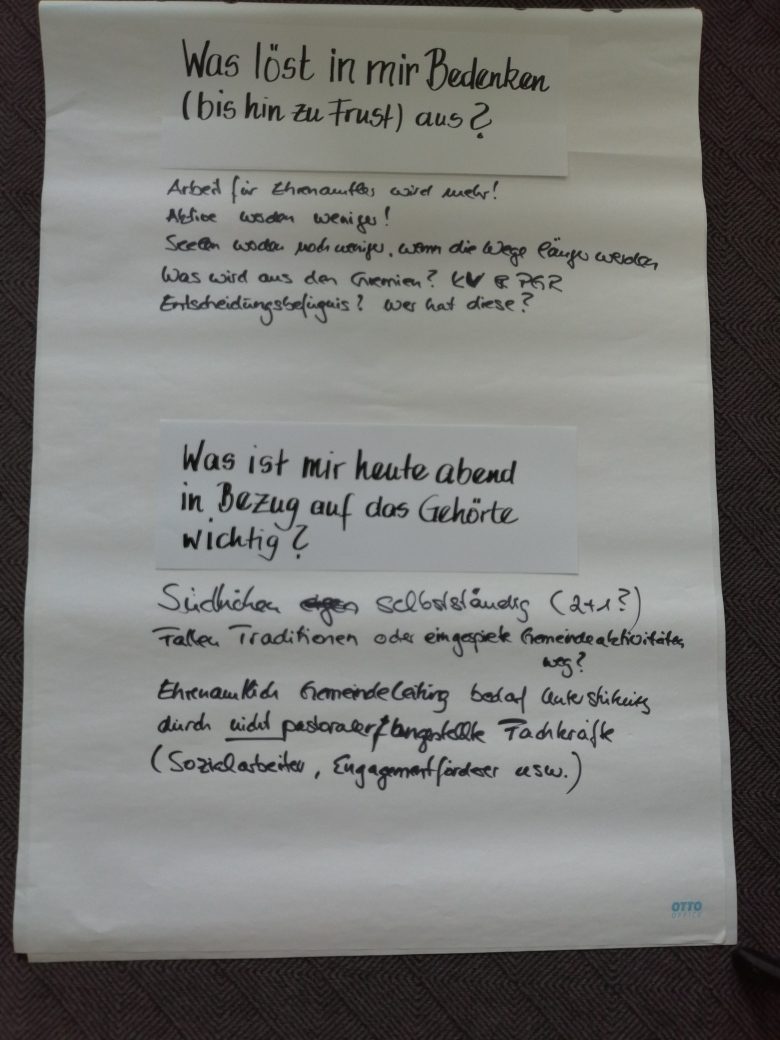 Was löst in mir Bedenken
(bis hin zu Frust) aus?
Arbeit für Ehrenamtler wird mehr!
Aktive werden weniger!
Seelen werden noch weniger, wenn die Wege länger werden
Was wird aus den Gremien? KV & PGR
Entscheidungsbefugnis? Wer hat diese?
Was ist mir heute abend
in Bezug auf das Gehörte
wichtig?
selbstständig (2+1?)
Fallen Traditionen oder eingespielte Gemeindeaktivitäten
weg?
Ehrenamtlich Gemeindeleitung bedarf Unterstützung
durch nicht pastorale angestellte Fachkräfte
(Sozialarbeiter, Engagementförderer usw.)
OTTO
OFFICE